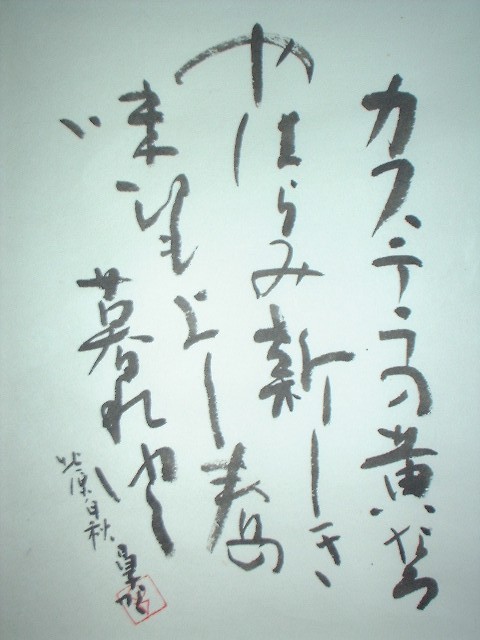 カステラの黄なる
やはらみ新しき
味ひもよし春の
暮れゆく
北原白秋